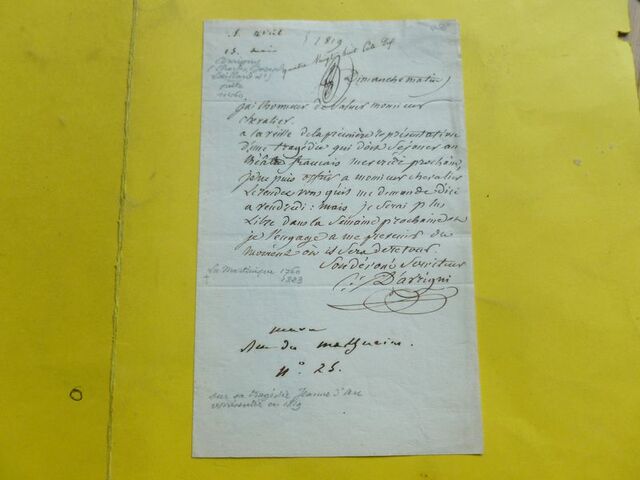 1819
Dimanche matin
j'ai l'honneur de saluer monsieur
chevalier.
a la veille de la première représentation
d'une tragédie qui doit se jouer au
théâtre français mercredi prochain,
je ne puis offrir a monsieur chevalier
le rendez vous qu'il me demande d'ici
a vendredi: mais je serai plus
libre dans la semaine prochaine et
je l'engage a me prevenir du
moment où il sera de retour
Son dévoué Serviteur
D'avrigni
La Martinique 1760
1823
rue des mathurins.
n° 25.
sur sa tragédie Jeanne d'Arc
représentée en 1819